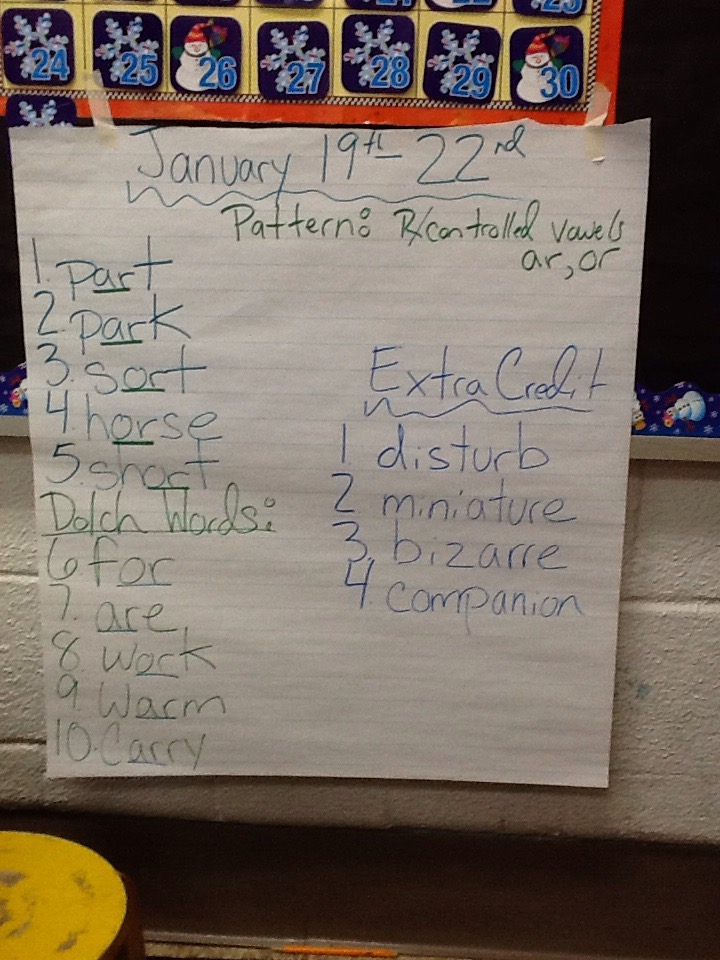 24 25 26 27 28 29 30
January 19th - 22nd
Pattern: R/controlled vowels
ar, or
1. part
2. park
3. sort
4. horse
5. short
Dolch Words:
6 for
7. are
8. work
9. warm
10. Carry
Extra Credit
1 disturb
2 miniature
3. bizarre
4. companion